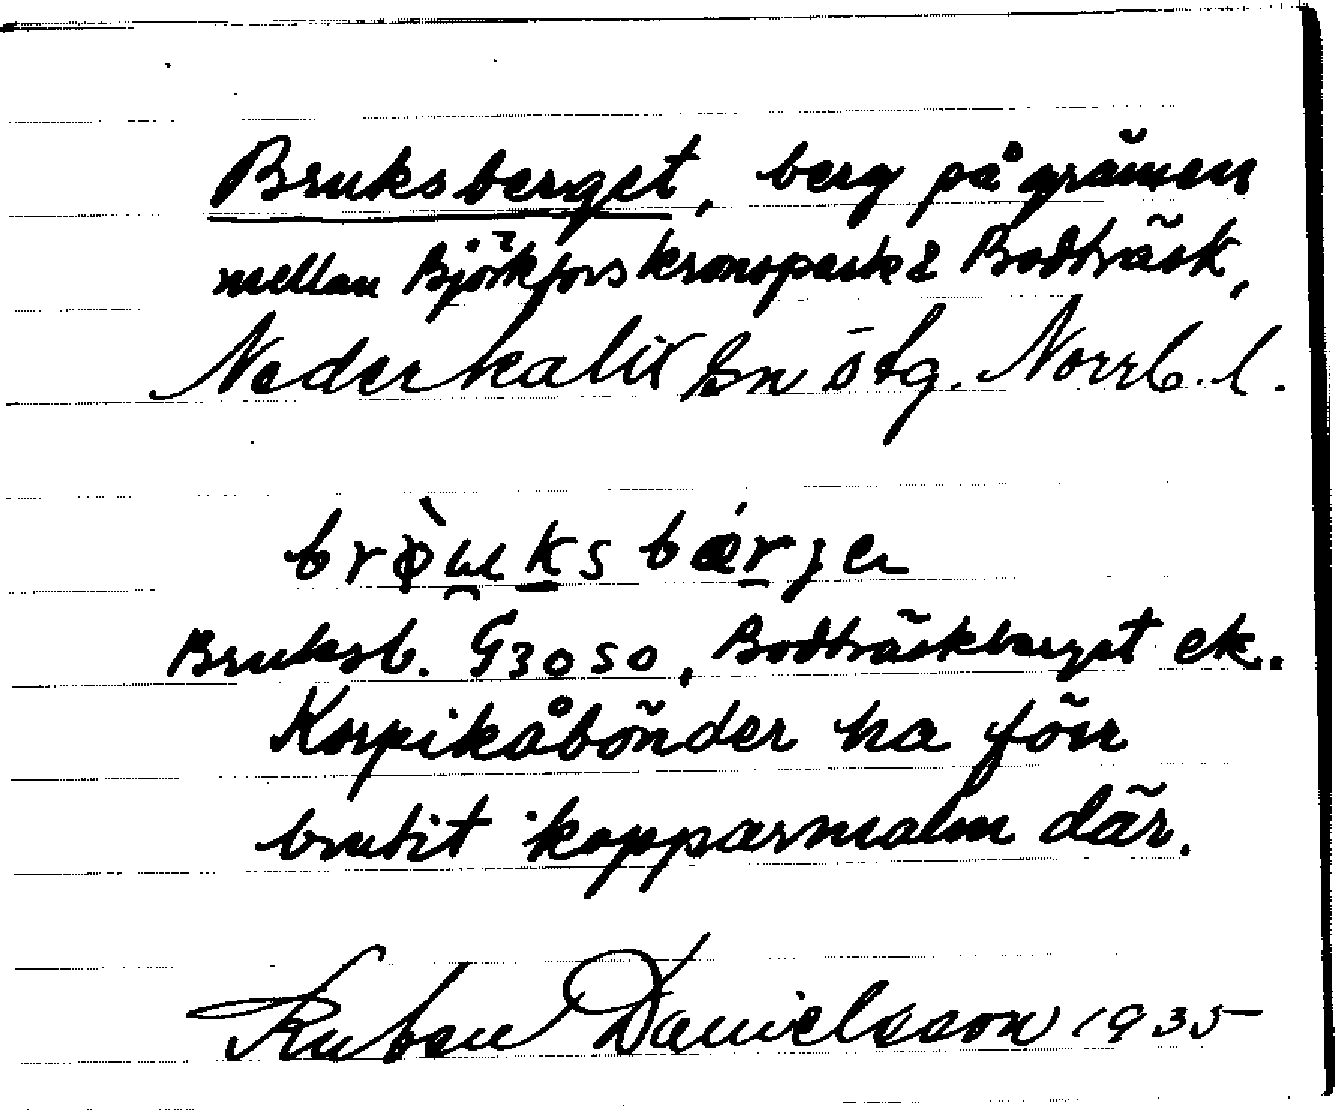 Bruksberget, berg på gränsen
mellan Björkfors kronopark & Bodträsk,
Nederkalix sn östg. Norrb. l.
brò̤u̯k̲s bǽr̲jen
Bruksb. G3050, Bodträskberget ek.
Korpikåbönder ha förr
brutit kopparmalm där.
Ruben Danielsson 1935